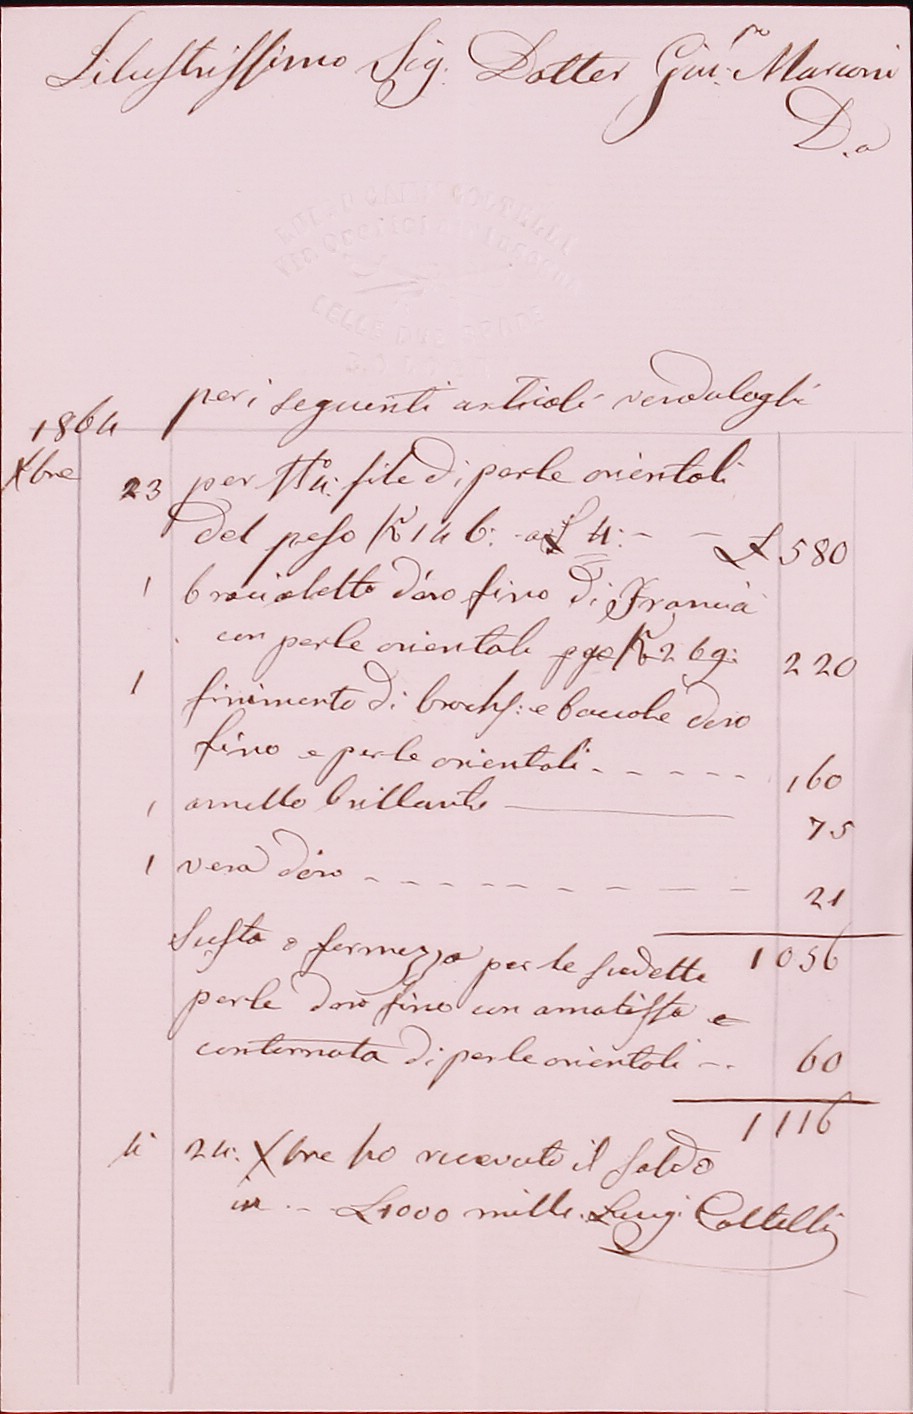 Illustrissimo Sig. Dotter Giu.e Marconi
D.a
DELLE DUE SPADE
per i seguenti articoli vendutogli
1864
Xbre 23 per N.o 4: file di perle orientali
del peso K 146: a £ 4: - - £ 580
1 bracialetto d'oro fino di Francia
con perle orientali K 2 69: 220
1 finimento di broch: e boccole doro
fino e perle orientali - - - - - 160
1 anello brillante 75
1 vera d'oro - - - - - - - - - 21
1056
Susta o fermezza per le sudette
perle doro fino con amatista e
contornata di perle orientali - - 60
1116
li 24: Xbre ho ricevuto il saldo
in - - £1000 mille. Luigi Coltelli